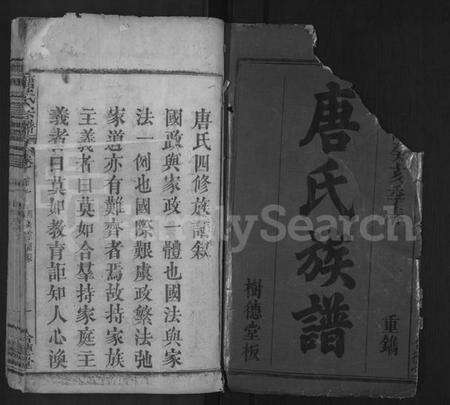 重鐫
唐氏族譜
樹德堂板
唐氏四修族譜叙
國政與家政一體也國法與家
法一例也國際艱虞政繁法弛
家道亦有難齊者焉故持家族
主義者曰莫如合羣持家庭主
義者曰莫如教育詎知人心渙
FamilySearch